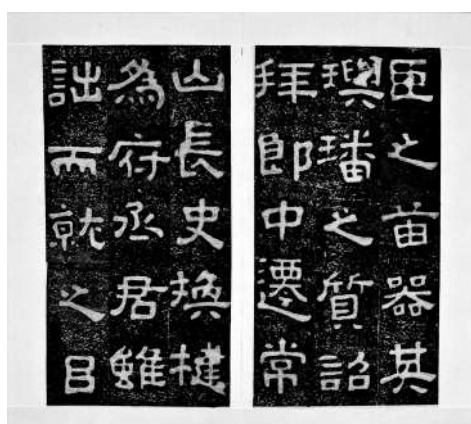 臣之苗器其
璵璠之質詔
拜郎中遷常
山長史換揵
為府丞君雖
詘而就之㠯